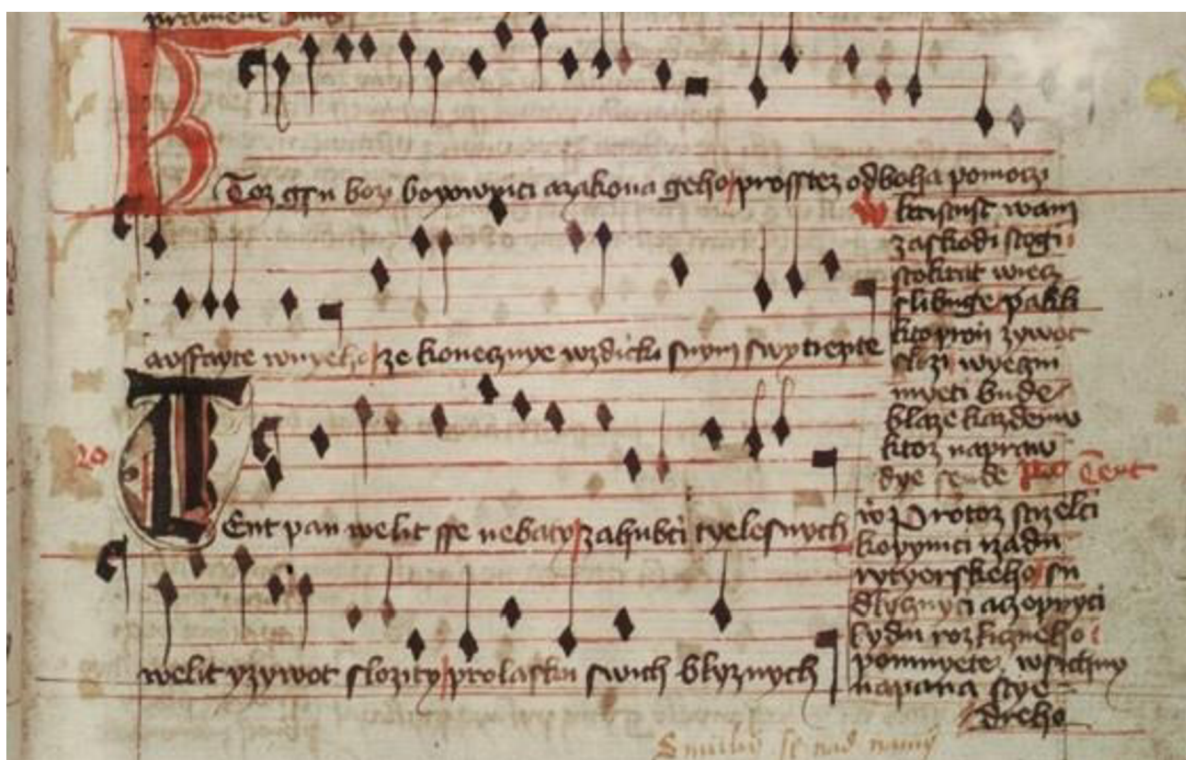 KToz gsu bozi boyownici azakona geho/prosstez odboha pomoczi
auffayte wnyeho/ze konecznye wzdicki snym swytiezite
TEnt pan welit sse nebaty/zahubci tyelesnych
welit yzywot slozity/prolasku swich blyznych
kristust wam
zaskodi stogi
stokrat wiecz
slibuge pakli
ktopron zywot
slozi wyeczni
myeti bude
blaze kazdemu
ktoz napraw
dye sende Tent
Protoz strzelci
kopynici rzadu
rytyerskeho su
dlycznyci aczepnyci
lydu rozliczneho
pomnyete wsichny
napana stye
dreho
Smiluj se nad namy